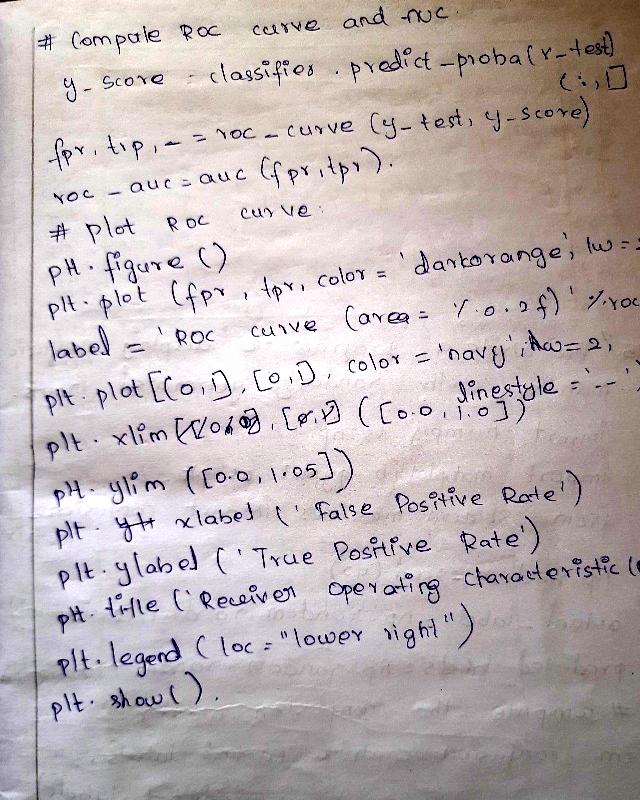 # Compute ROC curve and AUC.
y-score = classifier . predict-proba(x-test)
(:, []
fpr, trp, - = roc - curve (y-test, y-score)
roc - auc = auc (fpr, tpr).
# plot ROC curve:
plt. figure ()
plt. plot (fpr, tpr, color = 'darkorange', lw =
label = 'ROC curve (area = %.0.2f)' %.roc
plt. plot [(0,1], [0,1], color = 'navy', lw = 2,
linestyle = '--'
plt. xlim ([0.0, 1.0])
plt. ylim ([0.0, 1.05])
plt. xlabel (' False Positive Rate')
plt. ylabel ('True Positive Rate')
plt. title ('Receiver operating characteristic (
plt. legend (loc = "lower right")
plt. show().